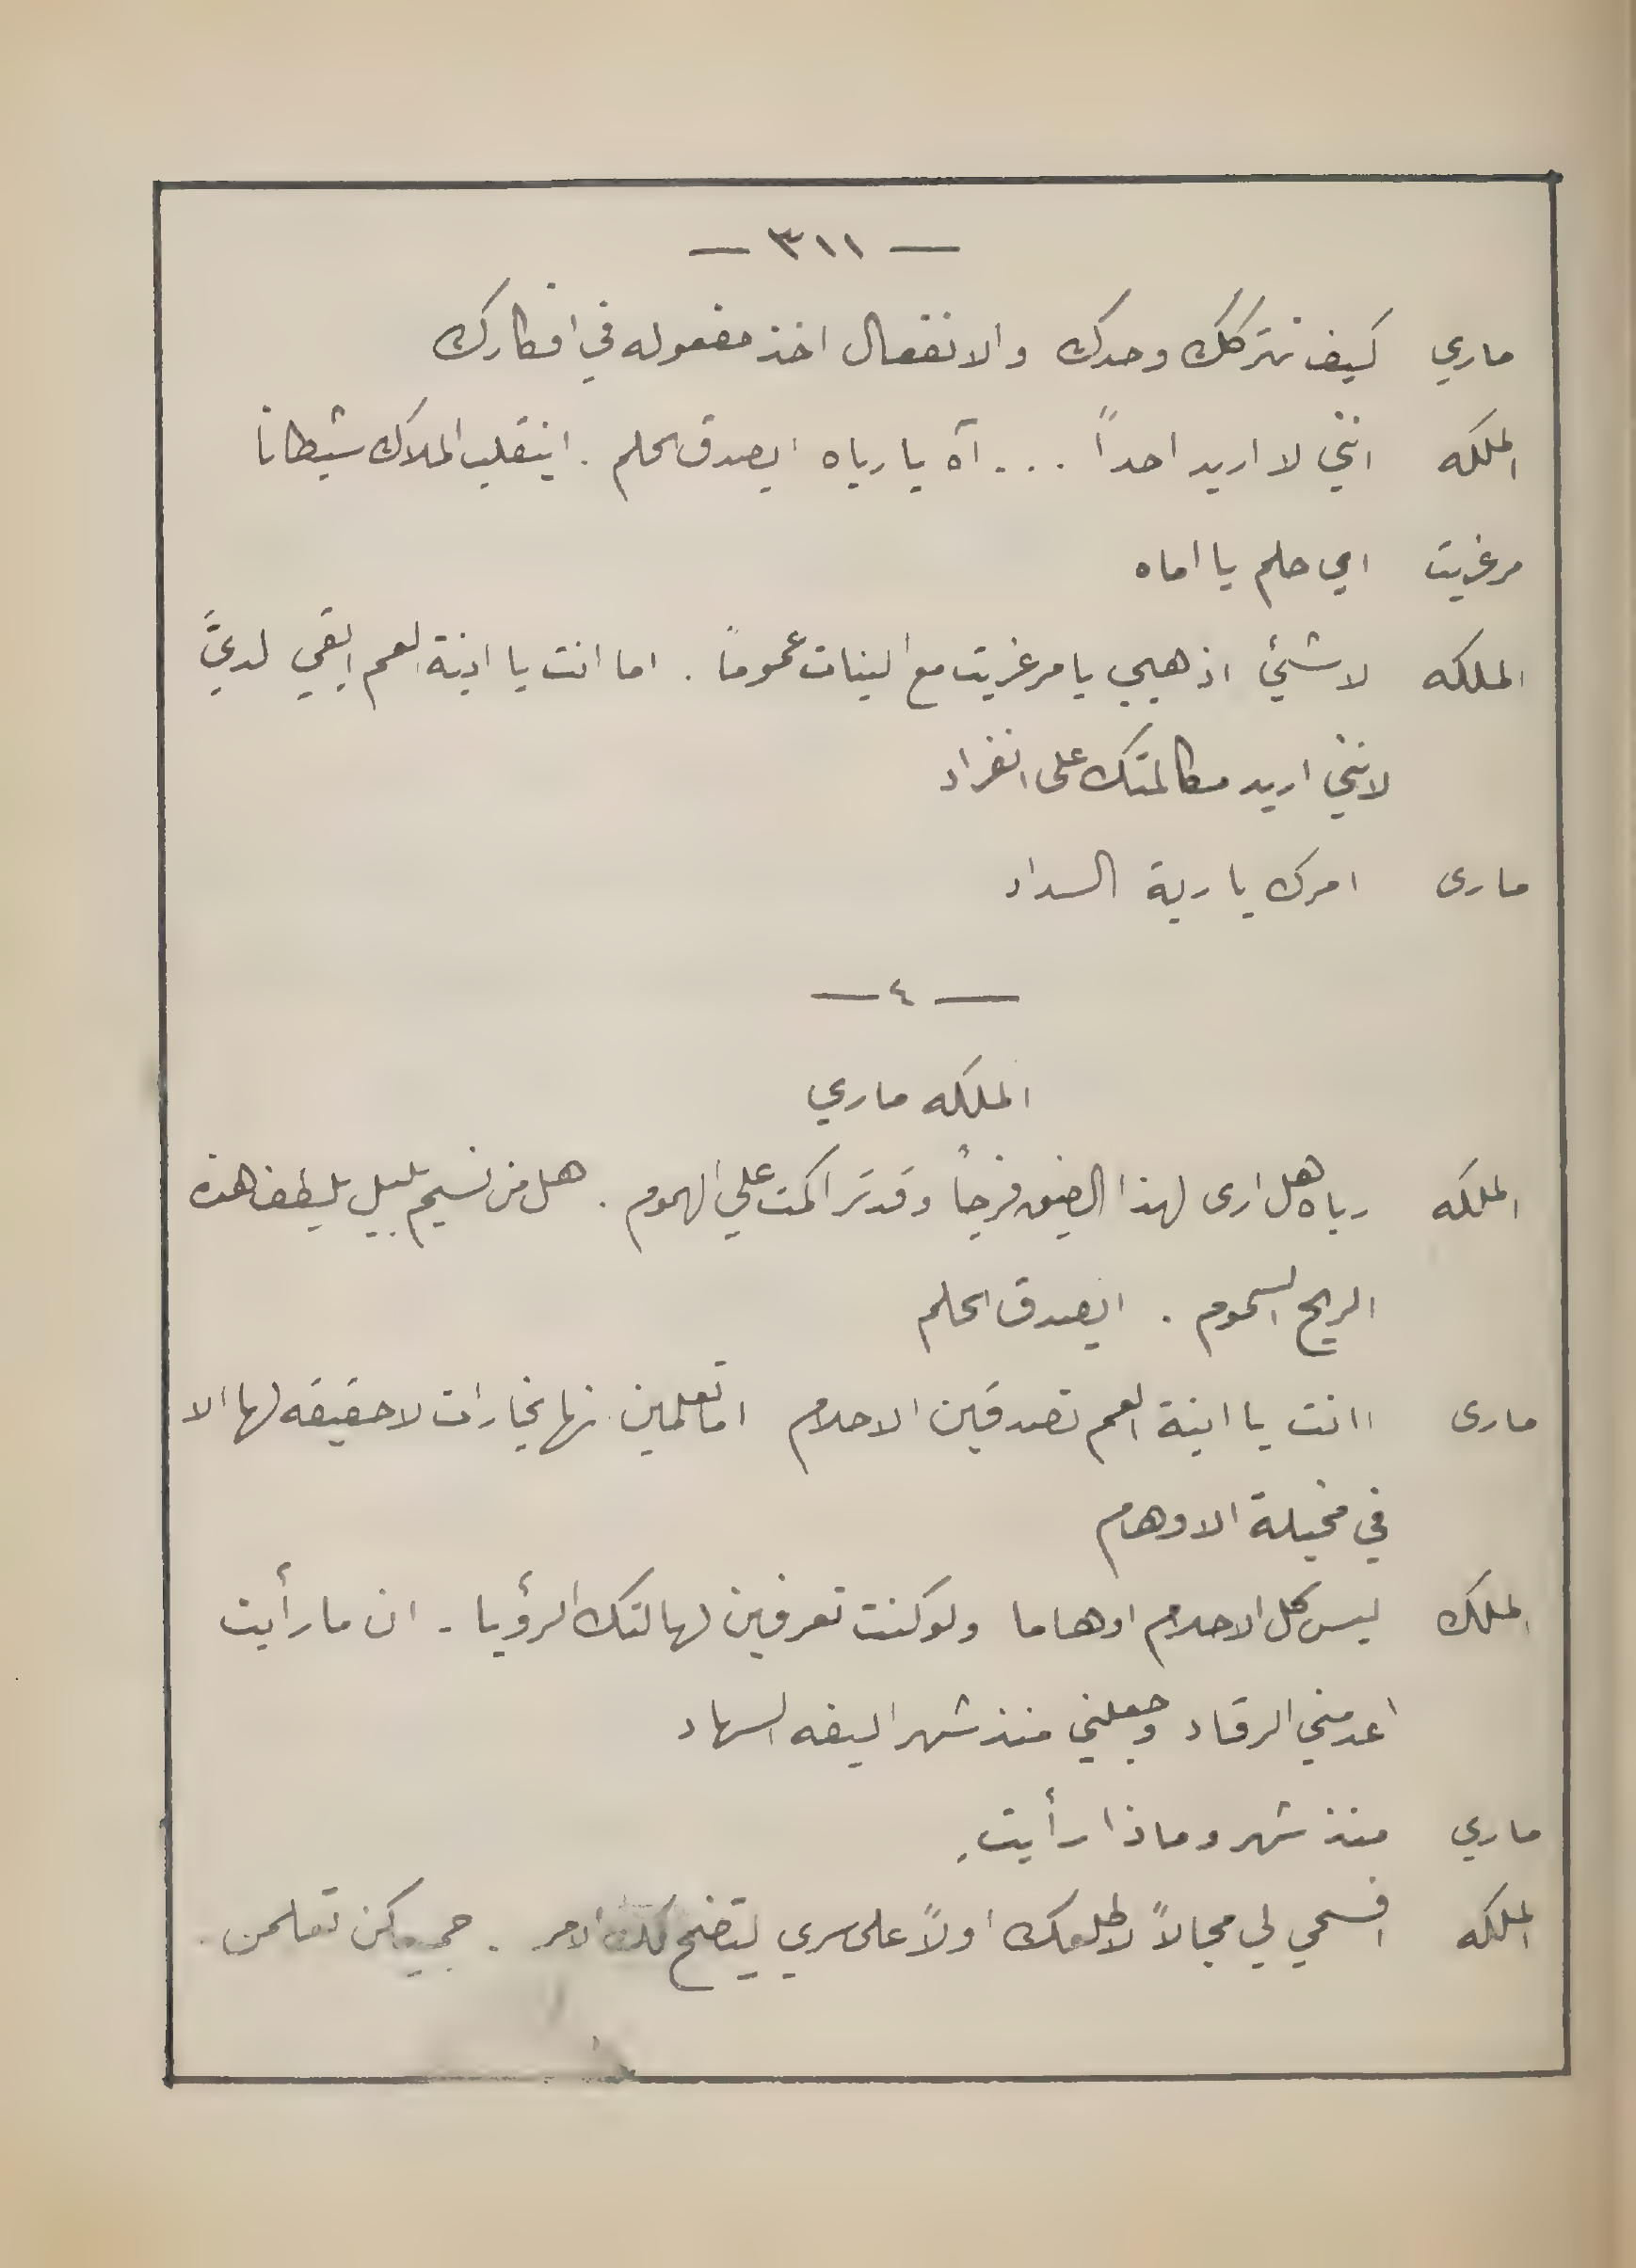 — ٣١١ —
ماري كيف نتركك وحدك والانفعال اخذ مفعوله في افكارك
الملكه انني لا اريد احداً . . . . آه يا رباه ايصدق الحلم . اينقلب الملاك شيطانا
مرغريت اي حلم يا اماه
الملكه لا شئ اذهبي يا مرغريت مع البنات عموماً . اما انت يا ابنة العم ابقي لديَّ
لانني اريد مكالمتك على انفراد
مارى امرك يا ربة السداد
— ٤ —
الملكه ماري
الملكه رباه هل ارى لهذا الضيق فرجاً وقد تراكمت علي الهموم . هل من نسيم بليل يلطف هذه
الريح السموم . ايصدق الحلم
مارى اانت يا ابنة العم تصدقين الاحلام اما تعلمين انها بخارات لا حقيقه لها الا
في مخيلة الاوهام
الملك ليس كل الاحلام اوهاما ولو كنت تعرفين لهالتك الرؤيا - ان ما رأيت
اعدمني الرقاد وجعلني منذ شهر اليفه السهاد
ماري منذ شهر وماذا رأيتِ
الملكه افسحي لي مجالاً لاطلعك اولاً على سري ليتضح لك الامر . جميعكن تعلمن .